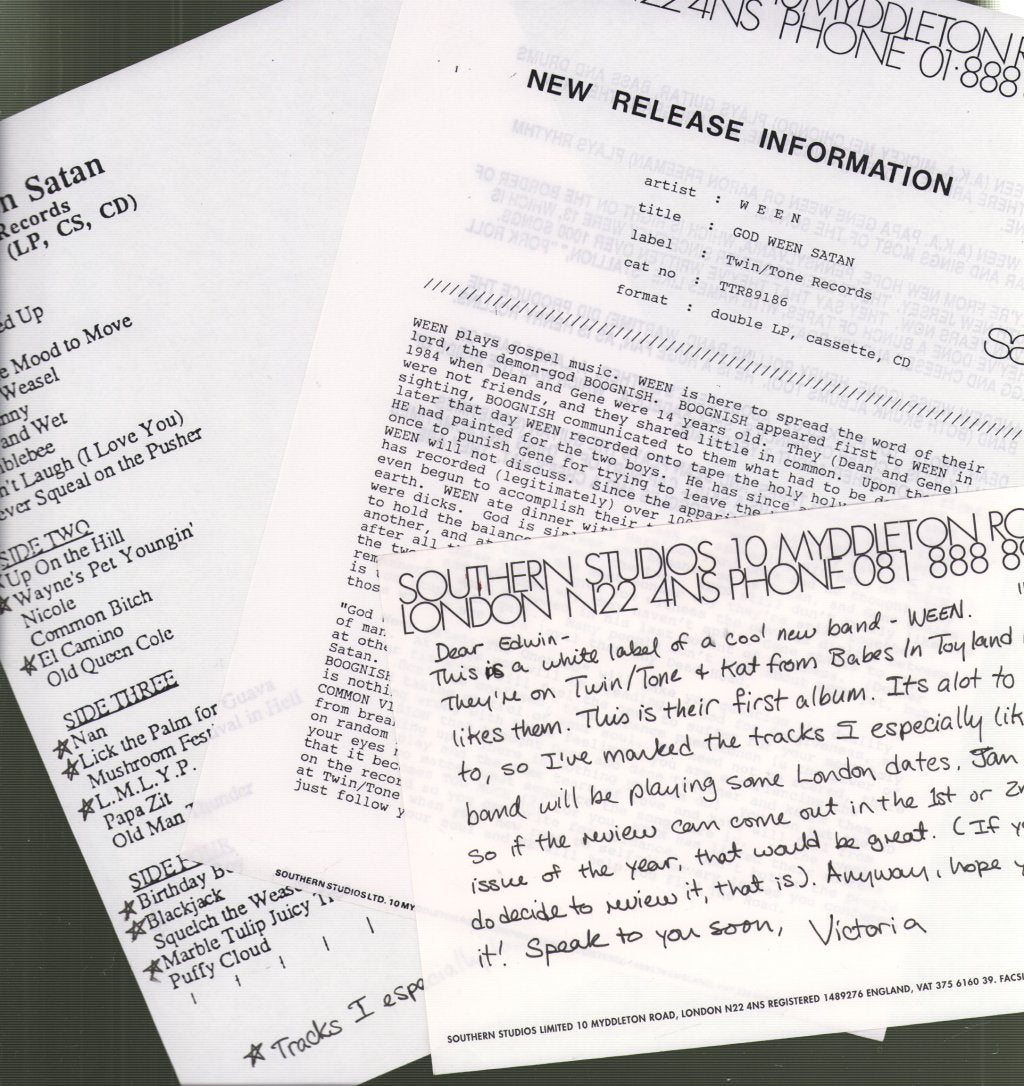 n Satan
Records
(LP, CS, CD)
ed Up
e Mood to Move
Weasel
nny
and Wet
blebee
n't Laugh (I Love You)
ever Squeal on the Pusher
SIDE TWO
Up On the Hill
☆ Wayne's Pet Youngin'
Nicole
Common Bitch
☆ El Camino
Old Queen Cole
SIDE THREE
☆ Nan
☆ Lick the Palm for
Mushroom Fes
☆ L.M.L.Y.P.
Papa Zit
Old Man
SIDE F
☆ Birthday B
☆ Blackjack
Squelch the Wease
☆ Marble Tulip Juicy T
Puffy Cloud
☆ Tracks I espe
10 MYDDLETON R
N22 4NS PHONE 01·888
NEW RELEASE INFORMATION
artist : W E E N
title : GOD WEEN SATAN
label : Twin/Tone Records
cat no : TTR89186
format : double LP, cassette, CD
WEEN plays gospel music. WEEN is here to spread the word of their
lord, the demon-god BOOGNISH. BOOGNISH appeared first to WEEN in
1984 when Dean and Gene were 14 years old. They (Dean and Gene)
were not friends, and they shared little in common. Upon the
sighting, BOOGNISH communicated to them what had to be d
later that day WEEN recorded onto tape the holy holy
HE had painted for the two boys. He has since a
once to punish Gene for trying to leave the
WEEN will not discuss. Since the appari
has recorded (legitimately) over 10
even begun to accomplish their
earth. WEEN ate dinner wit
were dicks. God is si
to hold the balanc
another, and at
after all t
the tw
rem
is
thos
"God
of mar
at othe
Satan.
BOOGNISH
is nothi
COMMON VI
from brea
on random
your eyes
that it bec
on the recor
at Twin/Tone
just follow y
SOUTHERN STUDIOS LTD. 10 MY
SOUTHERN STUDIOS 10 MYDDLETON RO
LONDON N22 4NS PHONE 081 888 8
Dear Edwin-
This is a white label of a cool new band - WEEN.
They're on Twin/Tone & Kat from Babes In Toyland
likes them. This is their first album. Its alot to
to, so I've marked the tracks I especially lik
band will be playing some London dates, Jan
so if the review can come out in the 1st or 2n
issue of the year, that would be great. (If y
do decide to review it, that is). Anyway, hope y
it! Speak to you soon, Victoria
SOUTHERN STUDIOS LIMITED 10 MYDDLETON ROAD, LONDON N22 4NS REGISTERED 1489276 ENGLAND, VAT 375 6160 39. FACSI